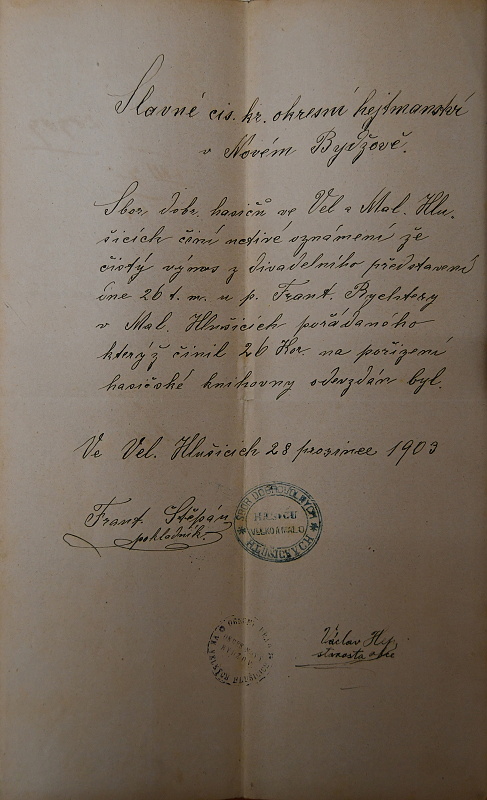 Slavné cis. kr. okresní hejtmanství
v Novém Bydžově.
Sbor dobr. hasičů ve Vel a Mal. Hlu-
šicích činí uctivé oznámení že
čistý výnos z divadelního představení
dne 26 t. m. u p. Frant. Rychtery
v Mal. Hlušicích pořádaného
kterýž činil 26 Kor. na pořízení
hasičské knihovny odevzdán byl.
Ve Vel. Hlušicích 28 prosince 1903
Frant. Štěpán
pokladník.
SBOR DOBROVOLNÝCH
HASIČŮ
VELKO A MALO
HLUŠICKÝCH
Václav
starosta obce